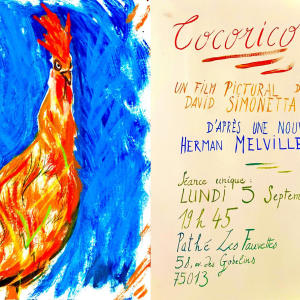 Cocorico
UN FILM PICTURAL D
DAVID SIMONETTA
D'APRÈS UNE NOUV
HERMAN MELVILLE
Séance unique :
LUNDI 5 Septem
19h45
Pathé Les Fauvettes
58, av. des Gobelins
75013